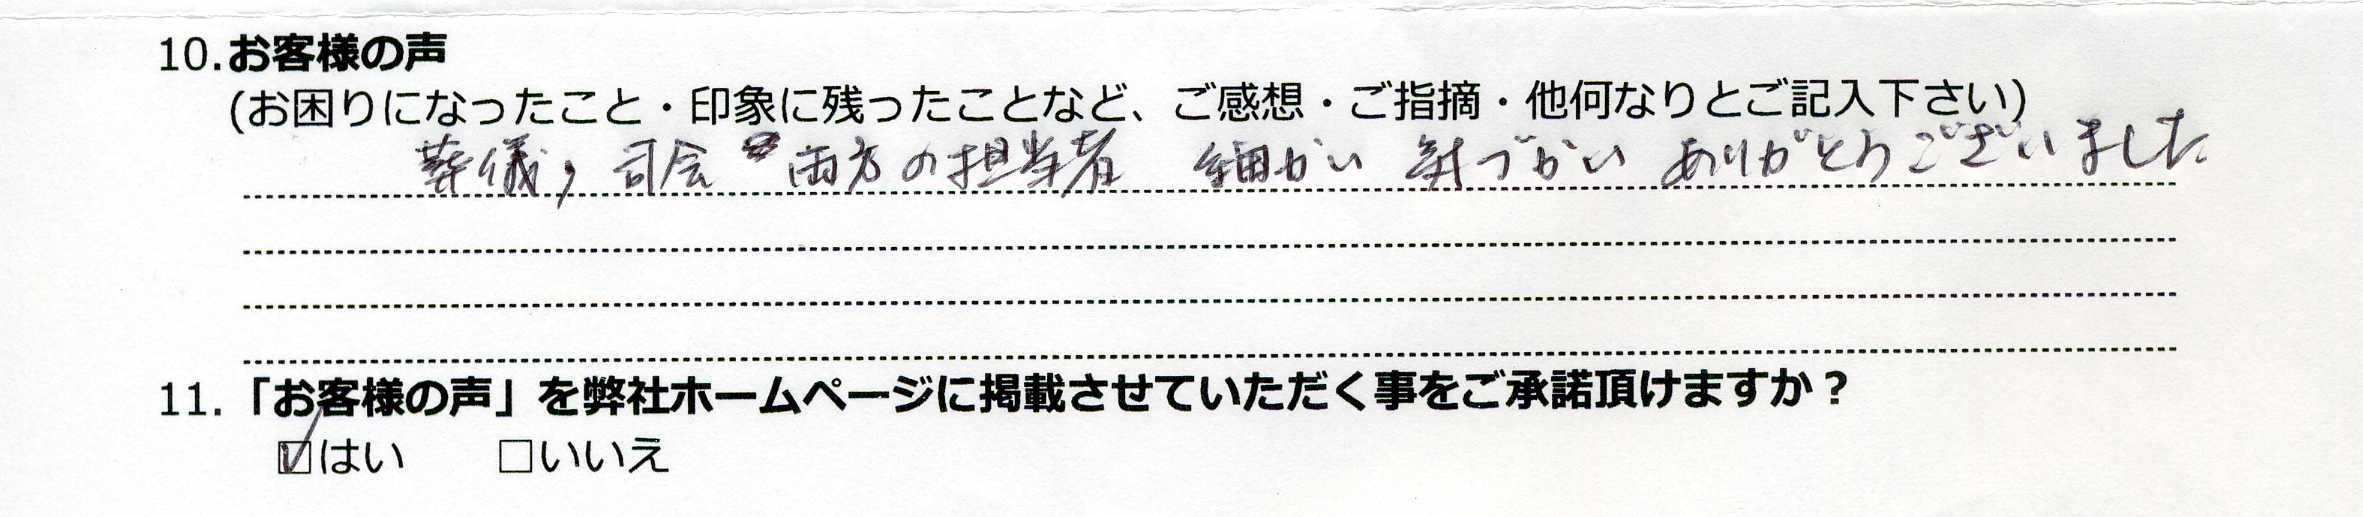 10.お客様の声
(お困りになったこと・印象に残ったことなど、ご感想・ご指摘・他何なりとご記入下さい)
葬儀，司会 両方の担当者 細かい 気づかい ありがとうございました
11.「お客様の声」を弊社ホームページに掲載させていただく事をご承諾頂けますか？
☑はい □いいえ